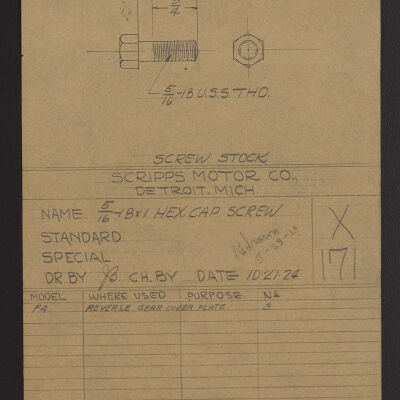 3/4
5/16-18 U.S.S. THD.
SCREW STOCK
SCRIPPS MOTOR CO.,
DETROIT. MICH
NAME 5/16-18x1 HEX. CAP SCREW
STANDARD
SPECIAL
Redrawn
5-29-29
DR. BY CH. BY DATE 10-21-24
X
171
MODEL WHERE USED PURPOSE No
F4 REVERSE GEAR COVER PLATE 3